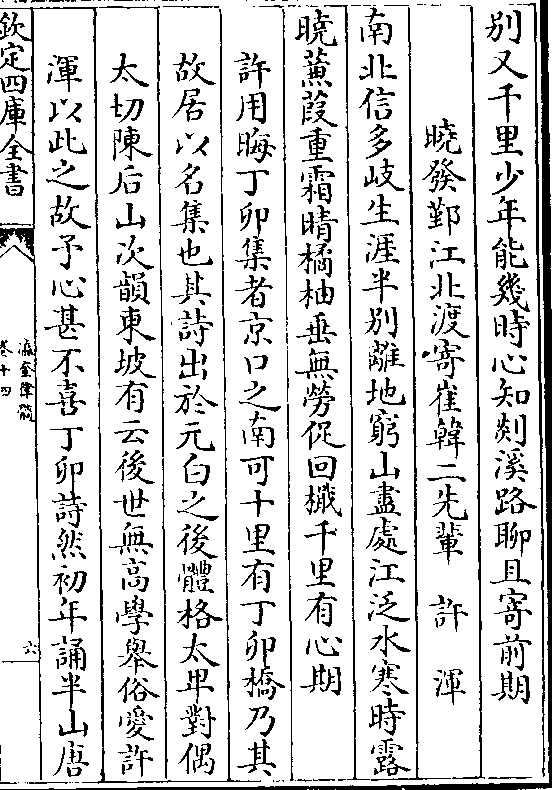 別又千里少年能幾時心知剡溪路聊且寄前期
曉發鄞江北渡寄崔韓二先輩 許渾
南北信多岐生涯半別離地窮山盡處江泛水寒時露
曉蒹葭重霜晴橘柚垂無勞促回檝千里有心期
許用晦丁卯集者京口之南可十里有丁卯橋乃其
故居以名集也其詩出於元白之後體格太卑對偶
太切陳后山次韻東坡有云後世無高學舉俗愛許
渾以此之故予心甚不喜丁卯詩然初年誦半山唐
欽定四庫全書
瀛奎律髓
卷十四
六